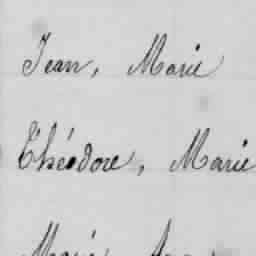 Jean, Marie
Théodore, Marie